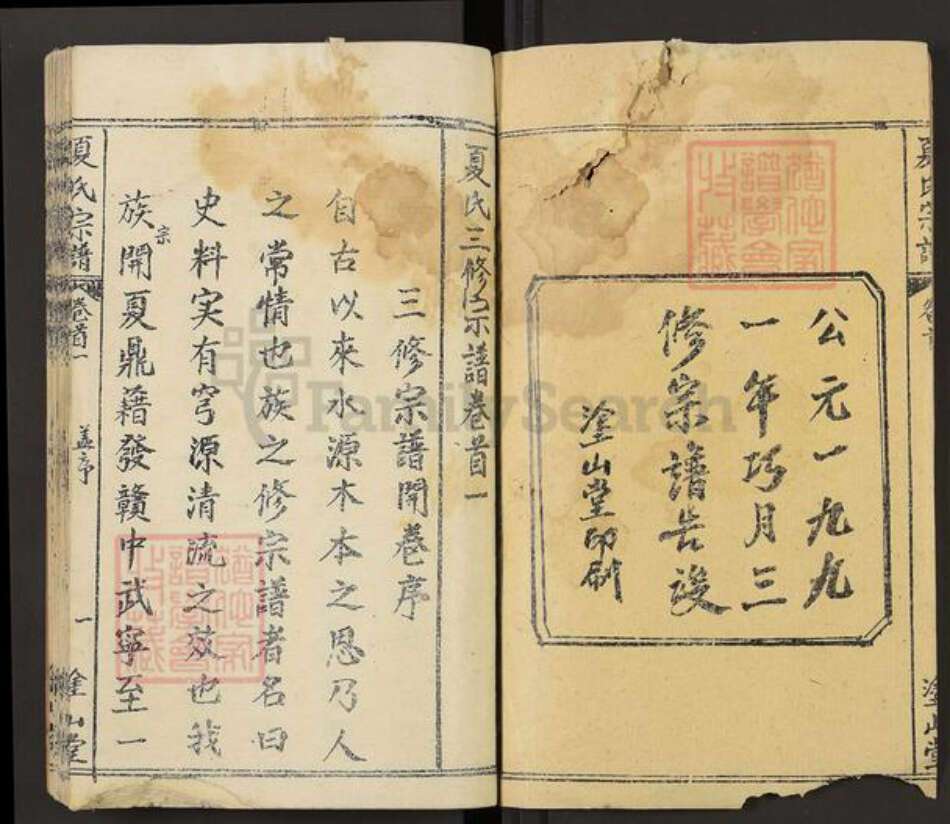 公元一九九
一年巧月三
修宗譜告竣
塗山堂印刷
夏氏宗譜
卷首
塗山堂
夏氏三修宗譜卷首一
三修宗譜開卷序
自古以來水源木本之恩乃人
之常情也族之修宗譜者名曰
史料实有穹源清流之效也我
族開夏鼎籍發贛中武寧至一
宗
夏氏宗譜
卷首一
一
塗山堂
FamilySearch